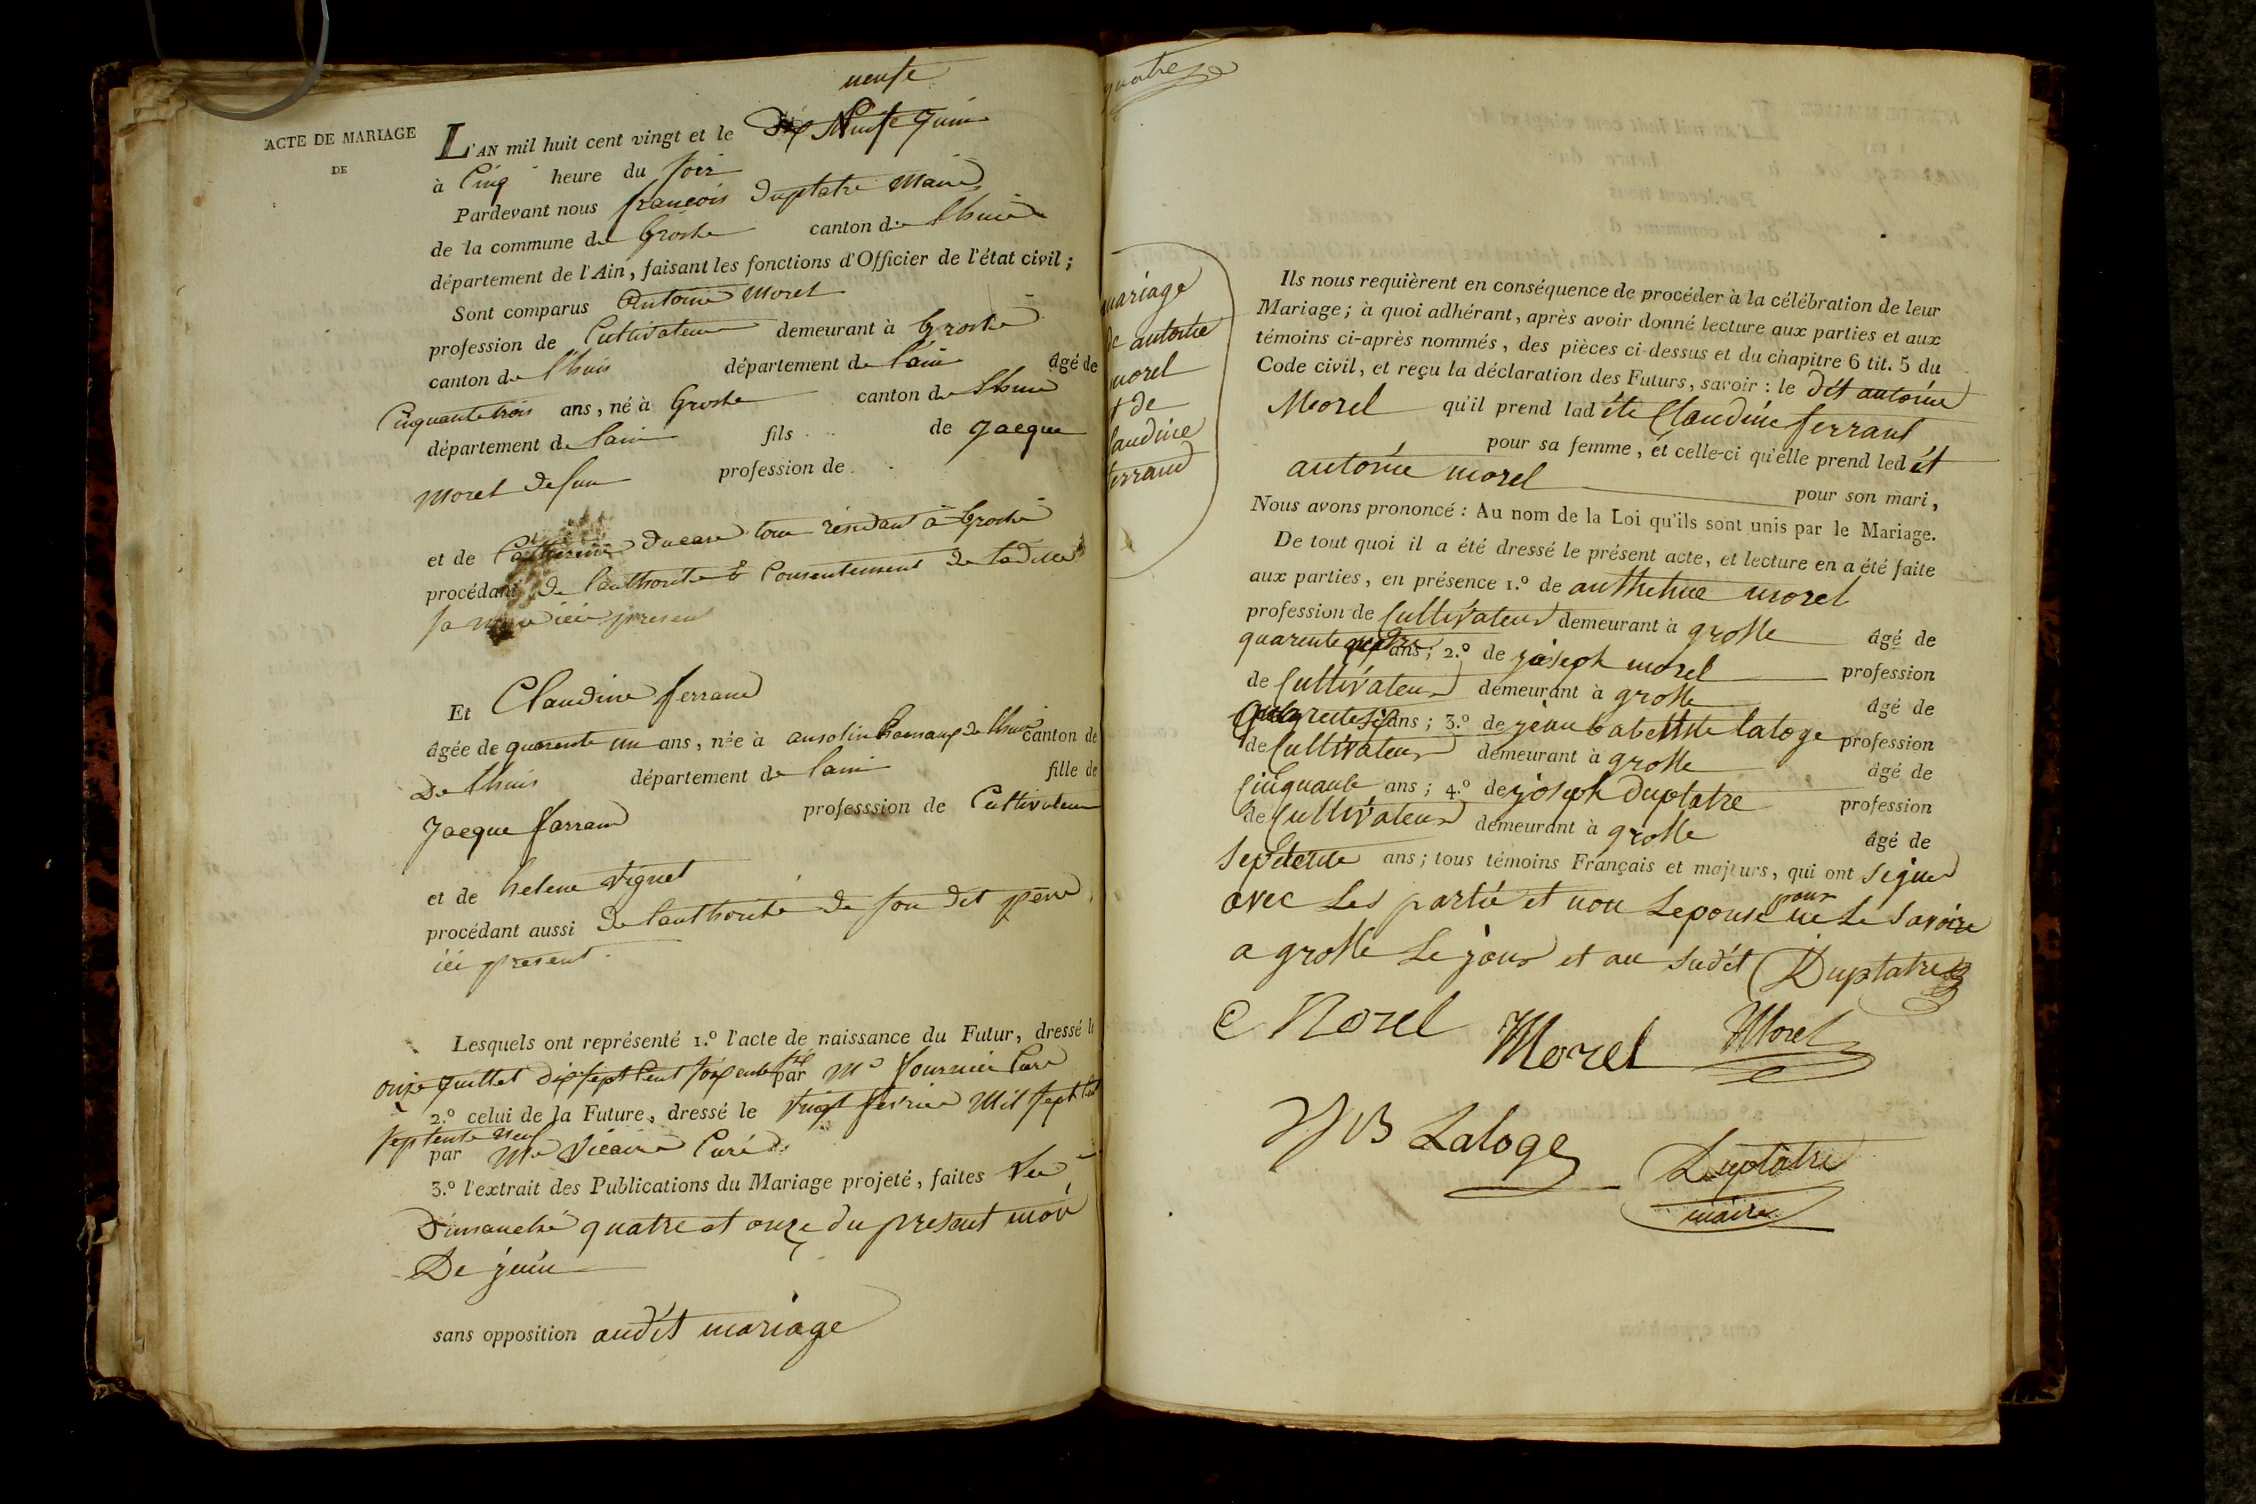 neufe
ACTE DE MARIAGE
DE
L'AN mil huit cent vingt et le dix Neufe juin
à Cinq heure du soir
Pardevant nous françois duplatre Maire
de la commune de Groslee canton de Lhuis
département de l'Ain, faisant les fonctions d'Officier de l'état civil;
Sont comparus Antoine Morel
profession de Cultivateur demeurant à Groslee
canton de lhuis département de l'ain âgé de
Cinquante trois ans, né à Groslee canton de Lhuis
département de l'ain fils de Jaeque
Morel defun profession de
et de Catherine ducare tou résidant à Groslee
procédant de l'authorité & Consentement de laditte
sa mere ici present
Et Claudine ferrand
âgée de quarente un ans, née à ansolin hameaux de lhuis canton de
De lhuis département de l'ain fille de
Jaeque farrand professsion de Cultivateur
et de helene Viguet
procédant aussi de l'authorité de son dit père
ici present.
Lesquels ont représenté 1.º l'acte de naissance du Futur, dressé le
onze juillet dix sept Cent soixente sept par Mr fournier Curé
2.º celui de la Future, dressé le vingt fevrier Mil sept Cent
septente neuf
par Mr Vicaire Curé
3.º l'extrait des Publications du Mariage projeté, faites les
dimanche quatre et onze du present moi
De juin
sans opposition audit mariage
quatre
mariage
de antoine
morel
et de
claudine
ferrand
Ils nous requièrent en conséquence de procéder à la célébration de leur
Mariage; à quoi adhérant, après avoir donné lecture aux parties et aux
témoins ci-après nommés, des pièces ci-dessus et du chapitre 6 tit. 5 du
Code civil, et reçu la déclaration des Futurs, savoir: le dit antoine
Morel qu'il prend ladite Claudine ferrant
pour sa femme, et celle-ci qu'elle prend ledit
antoine morel pour son mari,
Nous avons prononcé: Au nom de la Loi qu'ils sont unis par le Mariage.
De tout quoi il a été dressé le présent acte, et lecture en a été faite
aux parties, en présence 1.º de anthelme morel
profession de Cultivateur demeurant à grosle âgé de
quarente quatre ans; 2.º de joseph morel profession
de Cultivateur demeurant à grosle âgé de
quarente six ans; 3.º de jean babettiste laloge profession
de Cultivateur demeurant à grosle âgé de
Cinquante ans; 4.º de joseph duplatre profession
de Cultivateur demeurant à grosle âgé de
septente ans; tous témoins Français et majeurs, qui ont signer
avec Les partie et non Lepouse pour ne Le savoire
a grosle Le jour et an sudit Duplatre
C Morel Morel Morel
JB Laloge
Duplatre
maire